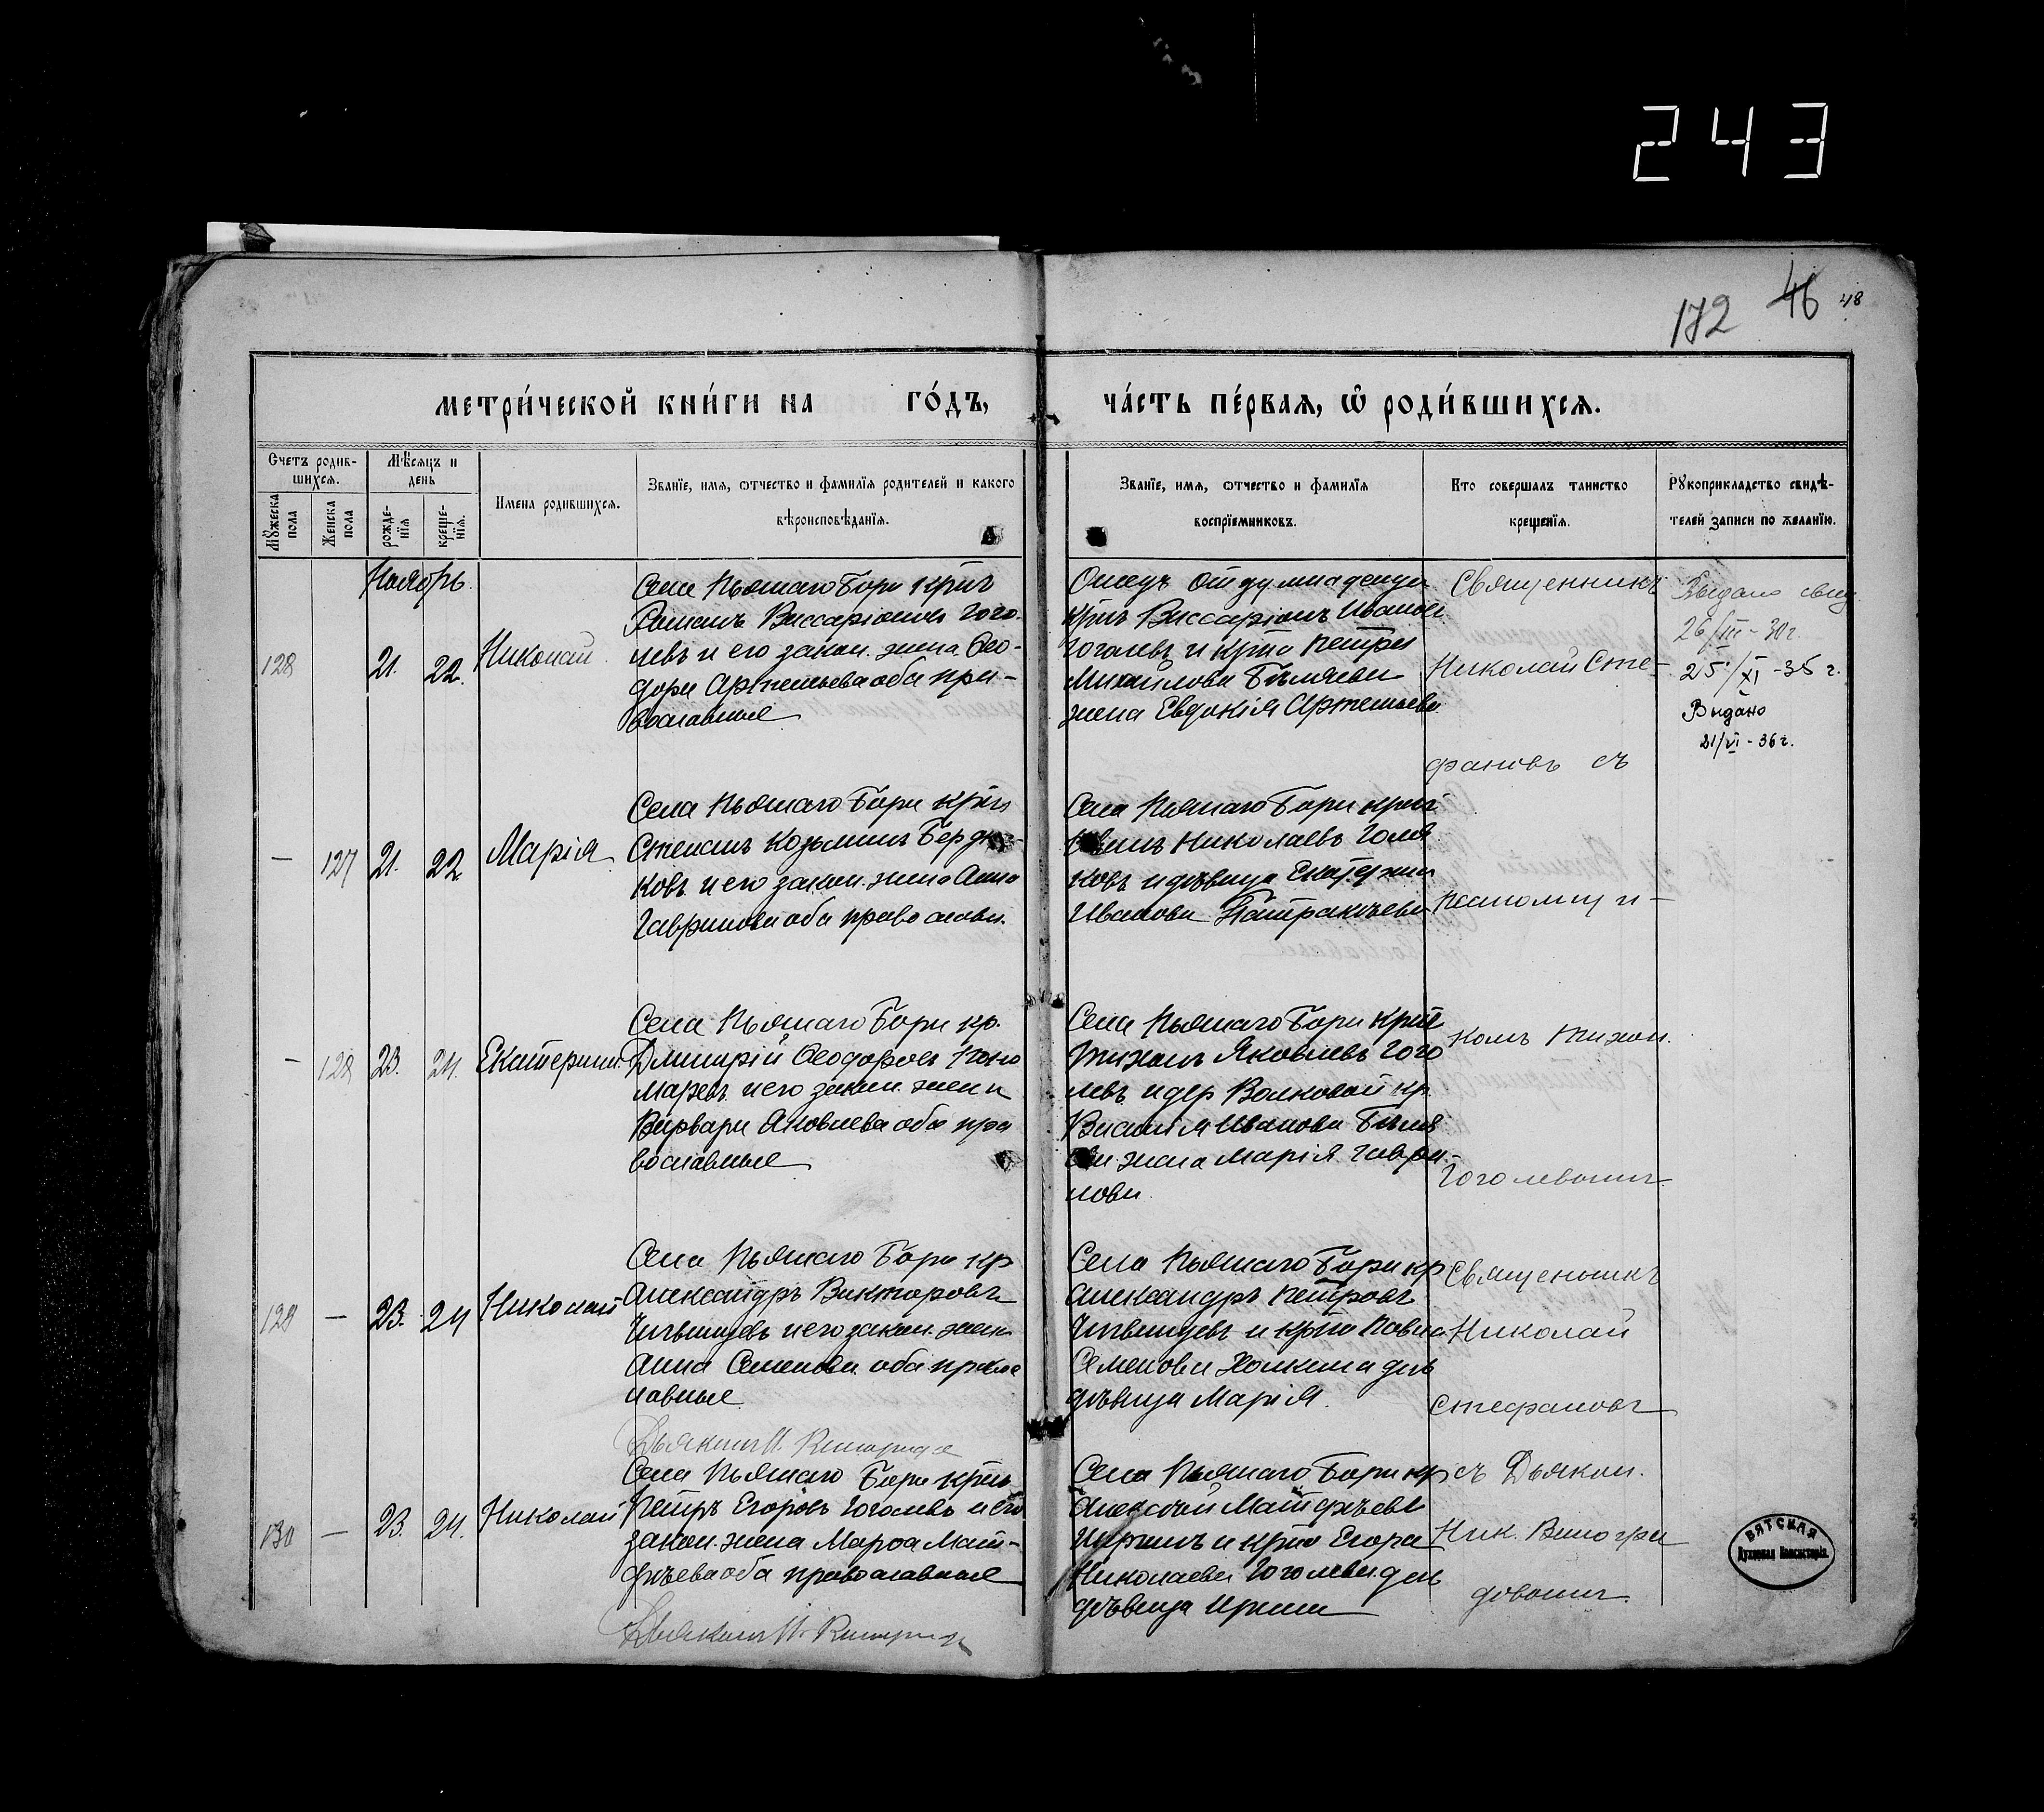 243
172 46 48
МЕТРИ́ЧЕСКОЙ КНИ́ГИ НА ГО́ДЪ,
ЧА́СТЬ ПЕ́РВАЯ, Ѡ҆ РОДИ́ВШИХСЯ.
Счетъ родив-
шихся.
Мѹжеска пола
Женска пола
Мѣсяцъ и
день
рожде-
нїя
креще-
нїя.
Имена родившихся.
Званїе, имя, ѡтчество и фамилїя родителей и какого
вѣроисповѣданїя.
Званїе, имя, ѡтчество и фамилїя
воспрїемниковъ.
Кто совершалъ таинство
крещенїя.
Рѹкоприкладство свидѣ-
телей записи по желанїю.
Ноябрь.
128
21. 22.
Николай
Села Пьянаго Бора крнъ
Романъ Виссаріоновъ Гого-
левъ и его закон. жена Ѳео-
дора Артемьева оба пра-
вославные
Отецъ отцу младенца
крнъ Виссаріонъ Ивановъ
Гоголевъ и крна Петра
Михайлова Бѣляева
жена Евдокія Артемьева
Выдано свид.
26/III - 30 г.
25/XI - 35 г.
Выдано
21/VI - 36 г.
— 127 21. 22
Марія
Села Пьянаго Бора крнъ
Степанъ Козьминъ Берд
ковъ и его закон. жена Анна
Гаврилова оба православн.
Села Пьянаго Бора крнъ
Николаевъ Голя
ковъ и дѣвица Екатерина
Иванова Патракѣева
— 128 23. 24.
Екатерина.
Села Пьянаго Бора кр.
Димитрій Ѳеодоровъ Поно
маревъ и его закон. жена
Варвара Яковлева оба пра
вославные
Села Пьянаго Бора крнъ
Тихонъ Яковлевъ Гого
левъ и дер Волковой кр.
Василія Иванова Бѣля
ева жена Марія Гаври-
лова.
Священникъ
Николай Сте-
фановъ съ
псаломщи-
комъ Тихон.
Гоголевымъ.
129 — 23. 24
Николай
Села Пьянаго Бора кр
Александръ Викторовъ
и его закон. жена
Анна Семенова оба право
славные
Дьяконъ Н. Виноград
Села Пьянаго Бора кр
Александръ Петровъ
и крна Павла
Семенова Холкина дчь
дѣвица Марія.
130 — 23. 24.
Николай
Села Пьянаго Бора крнъ
Петръ Егоровъ Гоголевъ и его
закон. жена Марѳа Мат-
фѣева оба православные
Дьяконъ Н. Виноград
Села Пьянаго Бора кр
Алексѣй Матфѣевъ
и крна Егора
Николаева Гоголева дчь
дѣвица Ирина
Священникъ
Николай
Стефановъ
съ Дьякон.
Ник. Виногра
довымъ.
ВЯТСКАЯ
Духовная Консисторія.